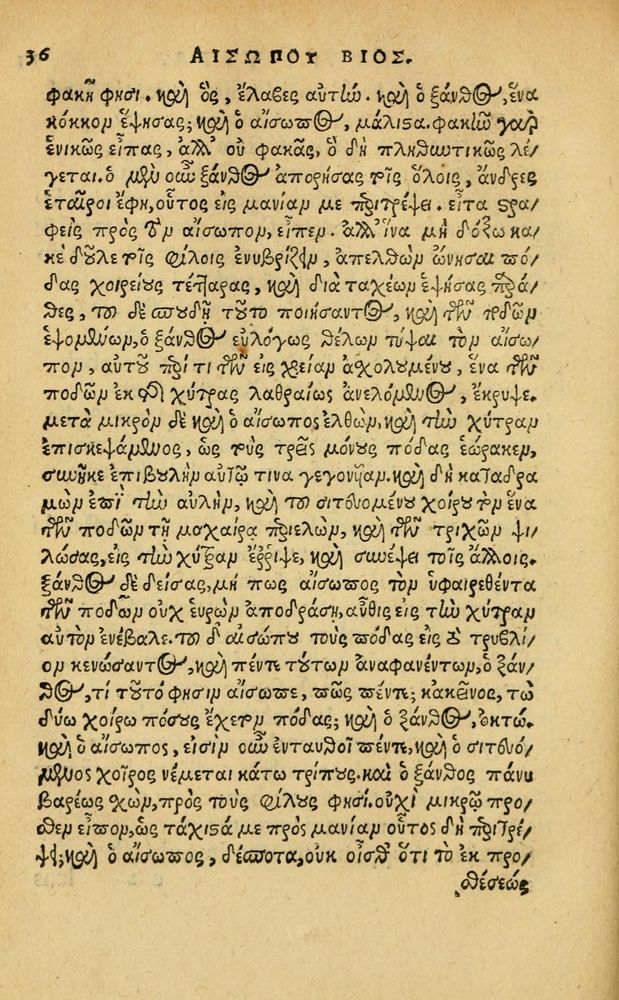 36 ΑΙΣΩΠΟΥ ΒΙΟΣ.
φακῆ φησι. καὶ ὃς, ἔλαβες αὐτὼ. καὶ ὁ ξάνθος, ἕνα
κόκκον ἕψησας; καὶ ὁ αἴσωπος, μάλιστα. φακὼ γὰρ
ἑνικῶς εἶπας, ἀλλ' οὐ φακᾶς, ὃ δὴ πληθωτικῶς λέ/
γεται. ὁ μὲν οὖν ξάνθος ἀπορήσας τοῖς ὅλοις, ἄνδρες
ἑταῖροι ἔφη, οὗτος εἰς μανίαν με περιτρέψει. εἶτα στρα/
φεὶς πρὸς τὸν αἴσωπον, εἶπεν. ἀλλ' ἵνα μὴ δόξω κα/
κὲ δοῦλε τοῖς φίλοις ἐνυβρίζειν, ἀπελθὼν ὤνησαι πό/
δας χοιρείους τέτταρας, καὶ διὰ ταχέων ἑψήσας παρά/
θες, τοῦ δὲ σπουδῆ τοῦτο ποιήσαντος, καὶ τῶν ποδῶν
ἑψομένων, ὁ ξάνθος εὐλόγως θέλων τύψαι τὸν αἴσω/
πον, αὐτοῦ περί τι τῶν εἰς χρείαν ἀσχολουμένου, ἕνα τῶν
ποδῶν ἐκ τῆς χύτρας λαθραίως ἀνελόμενος, ἔκρυψε.
μετὰ μικρὸν δὲ καὶ ὁ αἴσωπος ἐλθὼν, καὶ τὼ χύτραν
ἐπισκεψάμενος, ὡς τοὺς τρεῖς μόνους πόδας ἑώρακεν,
συνῆκε ἐπιβουλὴν αὐτῷ τινα γεγονῆαν. καὶ δὴ καταδρα
μὼν ἐπὶ τὼ αὐλὴν, καὶ τοῦ σιτευομένου χοίρου τὸν ἕνα
τῶν ποδῶν τῇ μαχαίρᾳ περιελὼν, καὶ τῶν τριχῶν ψι/
λώσας, εἰς τὼ χύτραν ἔρριψε, καὶ συνέψει τοῖς ἄλλοις.
ξάνθος δὲ δείσας, μή πως αἴσωπος τὸν ὑφαιρεθέντα
τῶν ποδῶν οὐχ εὑρὼν ἀποδράσῃ, αὖθις εἰς τὼ χύτραν
αὐτὸν ἐνέβαλε. τοῦ δ' αἰσώπου τοὺς πόδας εἰς τὸ τρυβλί/
ον κενώσαντος, καὶ πέντε τούτων ἀναφανέντων, ὁ ξάν/
θος, τί τοῦτό φησιν αἴσωπε, πῶς πέντε; κἀκεῖνος, τὼ
δύω χοίρω πόσους ἔχετον πόδας; καὶ ὁ ξάνθος, ὀκτώ.
καὶ ὁ αἴσωπος, εἰσὶν οὖν ἐνταυθοῖ πέντε, καὶ ὁ σιτευό/
μενος χοῖρος νέμεται κάτω τρίπους. καὶ ὁ ξάνθος πάνυ
βαρέως σχὼν, πρὸς τοὺς φίλους φησί. οὐχὶ μικρῷ πρό/
σθεν εἶπον, ὡς τάχιστά με πρὸς μανίαν οὗτος δὴ περιτρέ/
ψει; καὶ ὁ αἴσωπος, δέσποτα, οὐκ οἶσθ' ὅτι τὸ ἐκ προ/
σθέσεώς